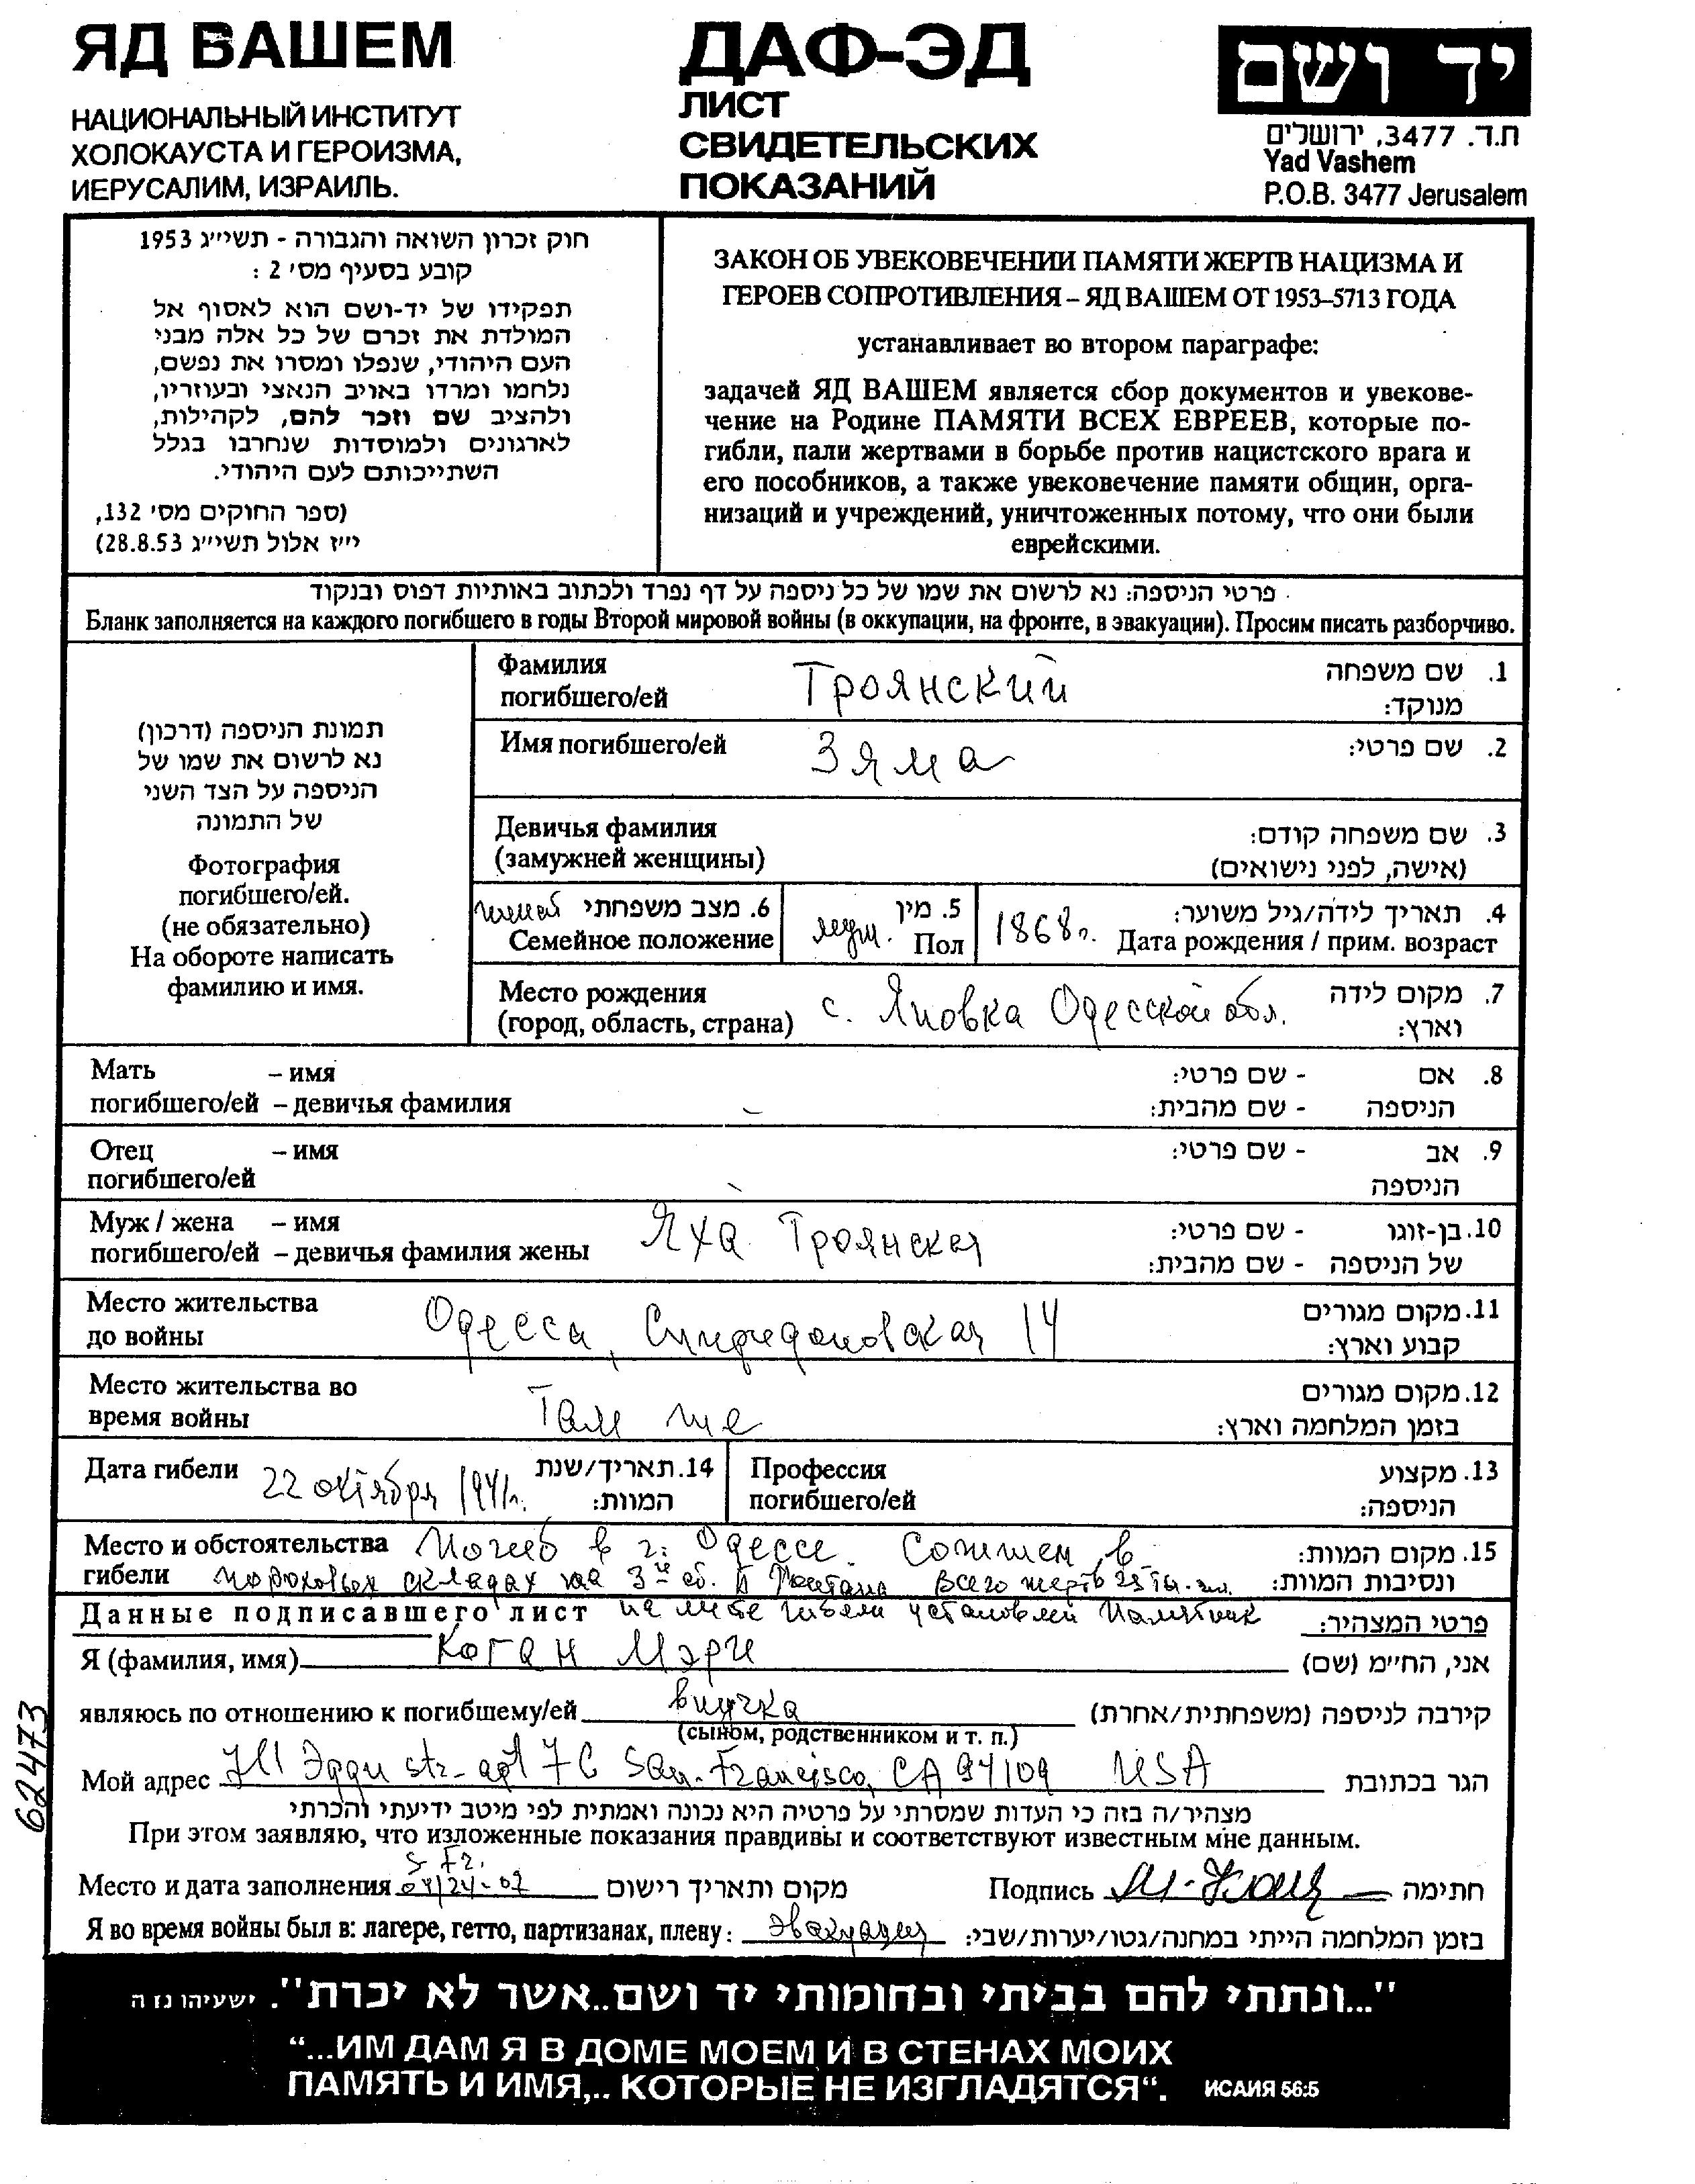 ЯД ВАШЕМ
НАЦИОНАЛЬНЫЙ ИНСТИТУТ
ХОЛОКАУСТА И ГЕРОИЗМА,
ИЕРУСАЛИМ, ИЗРАИЛЬ.
ДАФ-ЭД
ЛИСТ
СВИДЕТЕЛЬСКИХ
ПОКАЗАНИЙ
יד ושם
ת.ד. 3477, ירושלים
Yad Vashem
P.O.B. 3477 Jerusalem
חוק זכרון השואה והגבורה - תשי״ג 1953
קובע בסעיף מס׳ 2 :
תפקידו של יד-ושם הוא לאסוף אל
המולדת את זכרם של כל אלה מבני
העם היהודי, שנפלו ומסרו את נפשם,
נלחמו ומרדו באויב הנאצי ובעוזריו,
ולהציב שם וזכר להם, לקהילות,
לארגונים ולמוסדות שנחרבו בגלל
השתייכותם לעם היהודי.
(ספר החוקים מס׳ 132,
י״ז אלול תשי״ג 28.8.53)
ЗАКОН ОБ УВЕКОВЕЧЕНИИ ПАМЯТИ ЖЕРТВ НАЦИЗМА И
ГЕРОЕВ СОПРОТИВЛЕНИЯ – ЯД ВАШЕМ ОТ 1953–5713 ГОДА
устанавливает во втором параграфе:
задачей ЯД ВАШЕМ является сбор документов и увекове-
чение на Родине ПАМЯТИ ВСЕХ ЕВРЕЕВ, которые по-
гибли, пали жертвами в борьбе против нацистского врага и
его пособников, а также увековечение памяти общин, орга-
низаций и учреждений, уничтоженных потому, что они были
еврейскими.
פרטי הניספה: נא לרשום את שמו של כל ניספה על דף נפרד ולכתוב באותיות דפוס ובנקוד
Бланк заполняется на каждого погибшего в годы Второй мировой войны (в оккупации, на фронте, в эвакуации). Просим писать разборчиво.
תמונת הניספה (דרכון)
נא לרשום את שמו של
הניספה על הצד השני
של התמונה
Фотография
погибшего/ей.
(не обязательно)
На обороте написать
фамилию и имя.
Фамилия Троянский 1. שם משפחה
погибшего/ей מנוקד:
Имя погибшего/ей Зяма 2. שם פרטי:
Девичья фамилия 3. שם משפחה קודם:
(замужней женщины) (אישה, לפני נישואים)
6. מצב משפחתי 5. מין 4. תאריך לידה/גיל משוער:
женат Семейное положение муж. Пол 1868г. Дата рождения / прим. возраст
Место рождения с. Яновка Одесской обл. 7. מקום לידה
(город, область, страна) וארץ:
Мать – имя - שם פרטי: 8. אם
погибшего/ей – девичья фамилия - שם מהבית: הניספה
Отец – имя - שם פרטי: 9. אב
погибшего/ей הניספה
Муж / жена – имя Яха Троянская - שם פרטי: 10. בן-זוגו
погибшего/ей – девичья фамилия жены - שם מהבית: של הניספה
Место жительства Одесса, Спиридоновская 14 11. מקום מגורים
до войны קבוע וארץ:
Место жительства во Там же 12. מקום מגורים
время войны בזמן המלחמה וארץ:
Дата гибели 22 октября 1941г. 14. תאריך/שנת
המוות:
Профессия 13. מקצוע
погибшего/ей הניספה:
Место и обстоятельства Погиб в г. Одессе. Сожжен в 15. מקום המוות:
гибели пороховых складах на 3ей ст. Б Фонтана Всего жертв ונסיבות המוות:
Данные подписавшего лист на месте гибели установлен Памятник פרטי המצהיר:
Я (фамилия, имя) Коган Мэри אני, החי״מ (שם)
являюсь по отношению к погибшему/ей внучка קירבה לניספה (משפחתית/אחרת)
(сыном, родственником и т. п.)
Мой адрес 711 Эдди str-apt 7C San-Francisco, CA 94109 USA הגר בכתובת
מצהיר/ה בזה כי העדות שמסרתי על פרטיה היא נכונה ואמתית לפי מיטב ידיעתי והכרתי
При этом заявляю, что изложенные показания правдивы и соответствуют известным мне данным.
S Fr.
Место и дата заполнения 04/24-02 מקום ותאריך רישום Подпись М. Коган חתימה
Я во время войны был в: лагере, гетто, партизанах, плену: эвакуации בזמן המלחמה הייתי במחנה/גטו/יערות/שבי:
62473
"...ונתתי להם בביתי ובחומותי יד ושם..אשר לא יכרת". ישעיהו נז ה
“...ИМ ДАМ Я В ДОМЕ МОЕМ И В СТЕНАХ МОИХ
ПАМЯТЬ И ИМЯ,.. КОТОРЫЕ НЕ ИЗГЛАДЯТСЯ“. ИСАИЯ 56:5